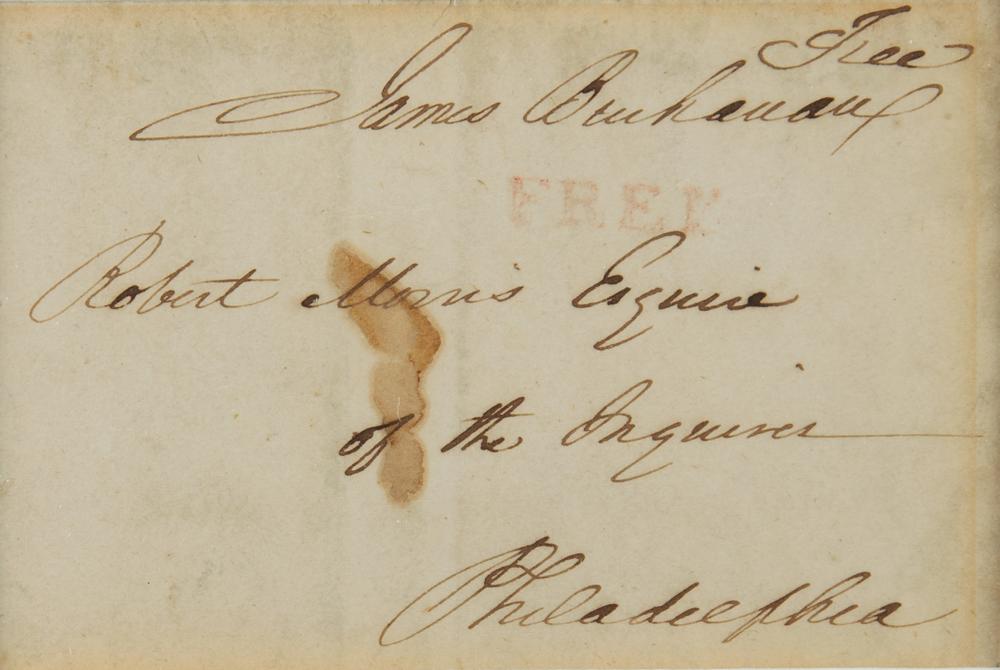 Free
James Buchanan
FREE
Robert Morris Esquire
of the Inquirer
Philadelphia